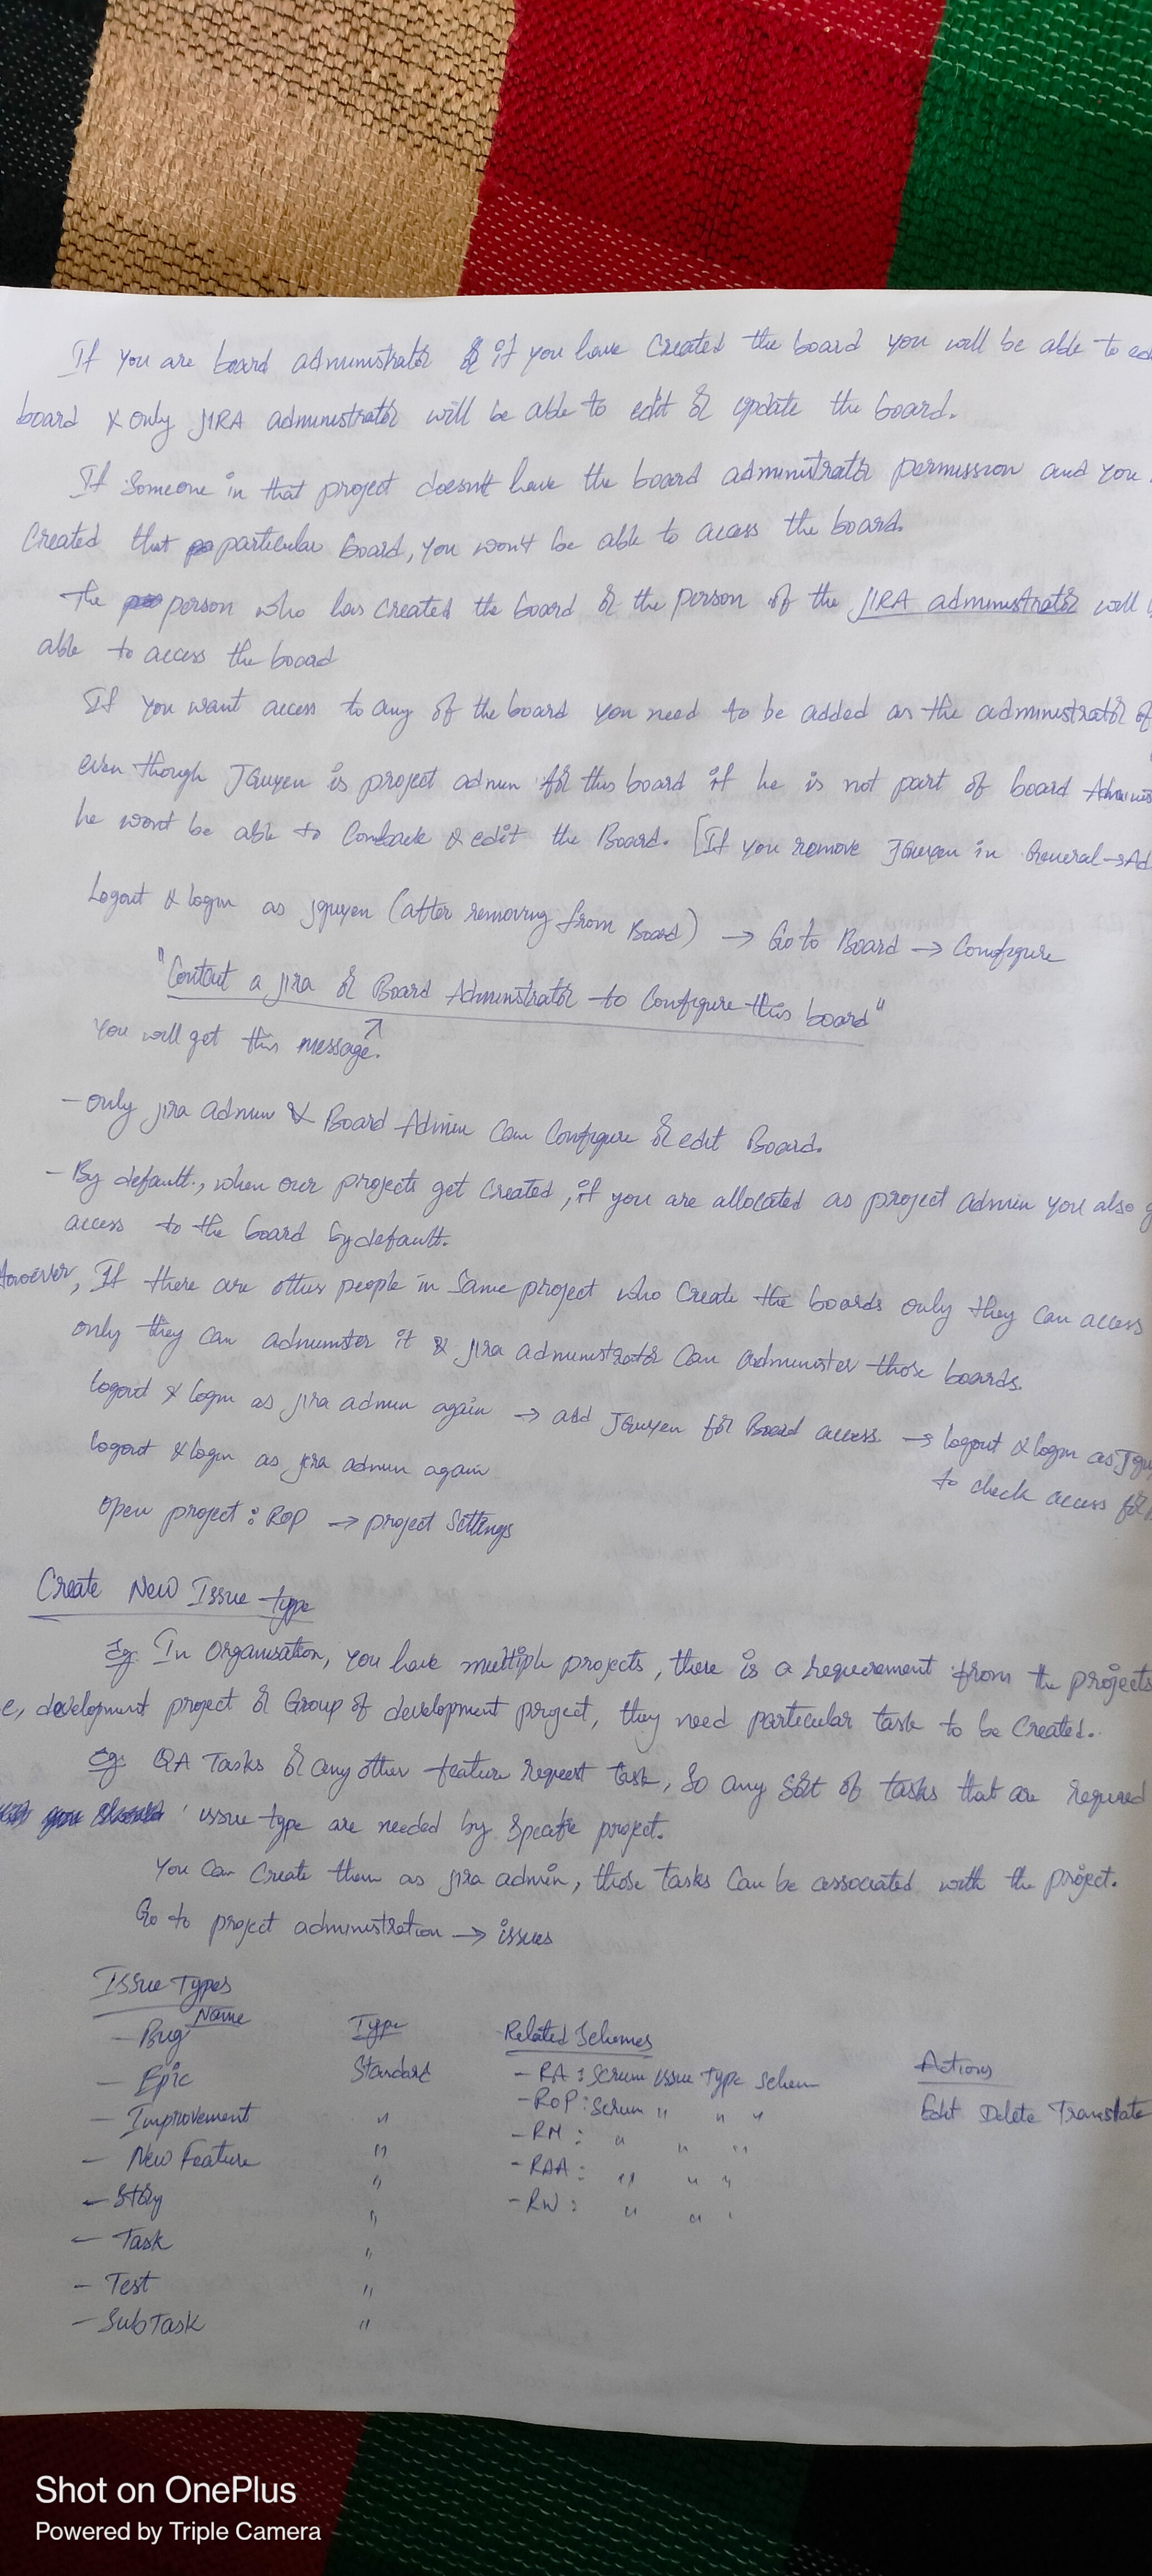 If you are board administrator or if you have created the board you will be able to
board & only JIRA administrator will be able to edit or update the board.
If someone in that project doesn't have the board administrator permission and you
created that particular board, you won't be able to access the board.
The person who has created the board or the person of the JIRA administrator will
able to access the board
If you want access to any of the board you need to be added as the administrator of
even though JGuyen is project admin for this board if he is not part of board
he wont be able to comeback & edit the Board. [If you remove JGuyen in General →
Logout & login as jguyen (after removing from Board) → Go to Board → Configure
"Contact a jira or Board Administrator to configure this board"
You will get this message.
- only jira admin & Board Admin can configure or edit Board.
- By default, when our projects get created, if you are allocated as project admin you also
access to the board by default.
However, If there are other people in same project who create the boards only they can access
only they can adminster it & jira administrator can administer those boards.
logout & login as jira admin again → add JGuyen for Board access → logout & login as
logout & login as jira admin again
to check access for
open project : ROP → project settings
Create New Issue type
Eg. In organisation, you have multiple projects, there is a requirement from the projects
e, development project or Group of development project, they need particular task to be created.
Eg. QA Tasks or any other feature request task, so any sort of tasks that are required
issue type are needed by specific project.
You can create them as jira admin, those tasks can be associated with the project.
Go to project administration → issues
Issue Types
Name Type Related Schemes Actions
- Bug Standard - RA : Scrum issue Type schem Edit Delete Translate
- Epic " - ROP : Scrum " " "
- Improvement " - RM : " " "
- New Feature " - RAA : " " "
- Story " - RW : " " "
- Task "
- Test "
- SubTask "
Shot on OnePlus
Powered by Triple Camera